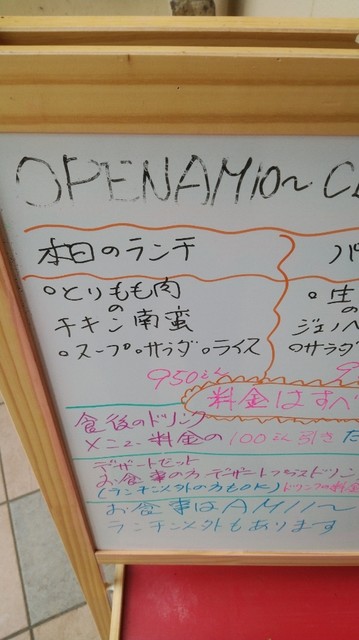 OPEN AM10〜 CL
本日のランチ
パ
○とりもも肉
の
チキン南蛮
○スープ○サラダ○ライス
950えん
○生
の
ジェノベ
○サラダ
9
料金はすべ
食後のドリンク
メニュー料金の100えん引き
デザートセット
お食事の方デザートプラスドリン
(ランチ以外の方もOK)ドリンクの料金
お食事はAM11〜
ランチ以外もあります